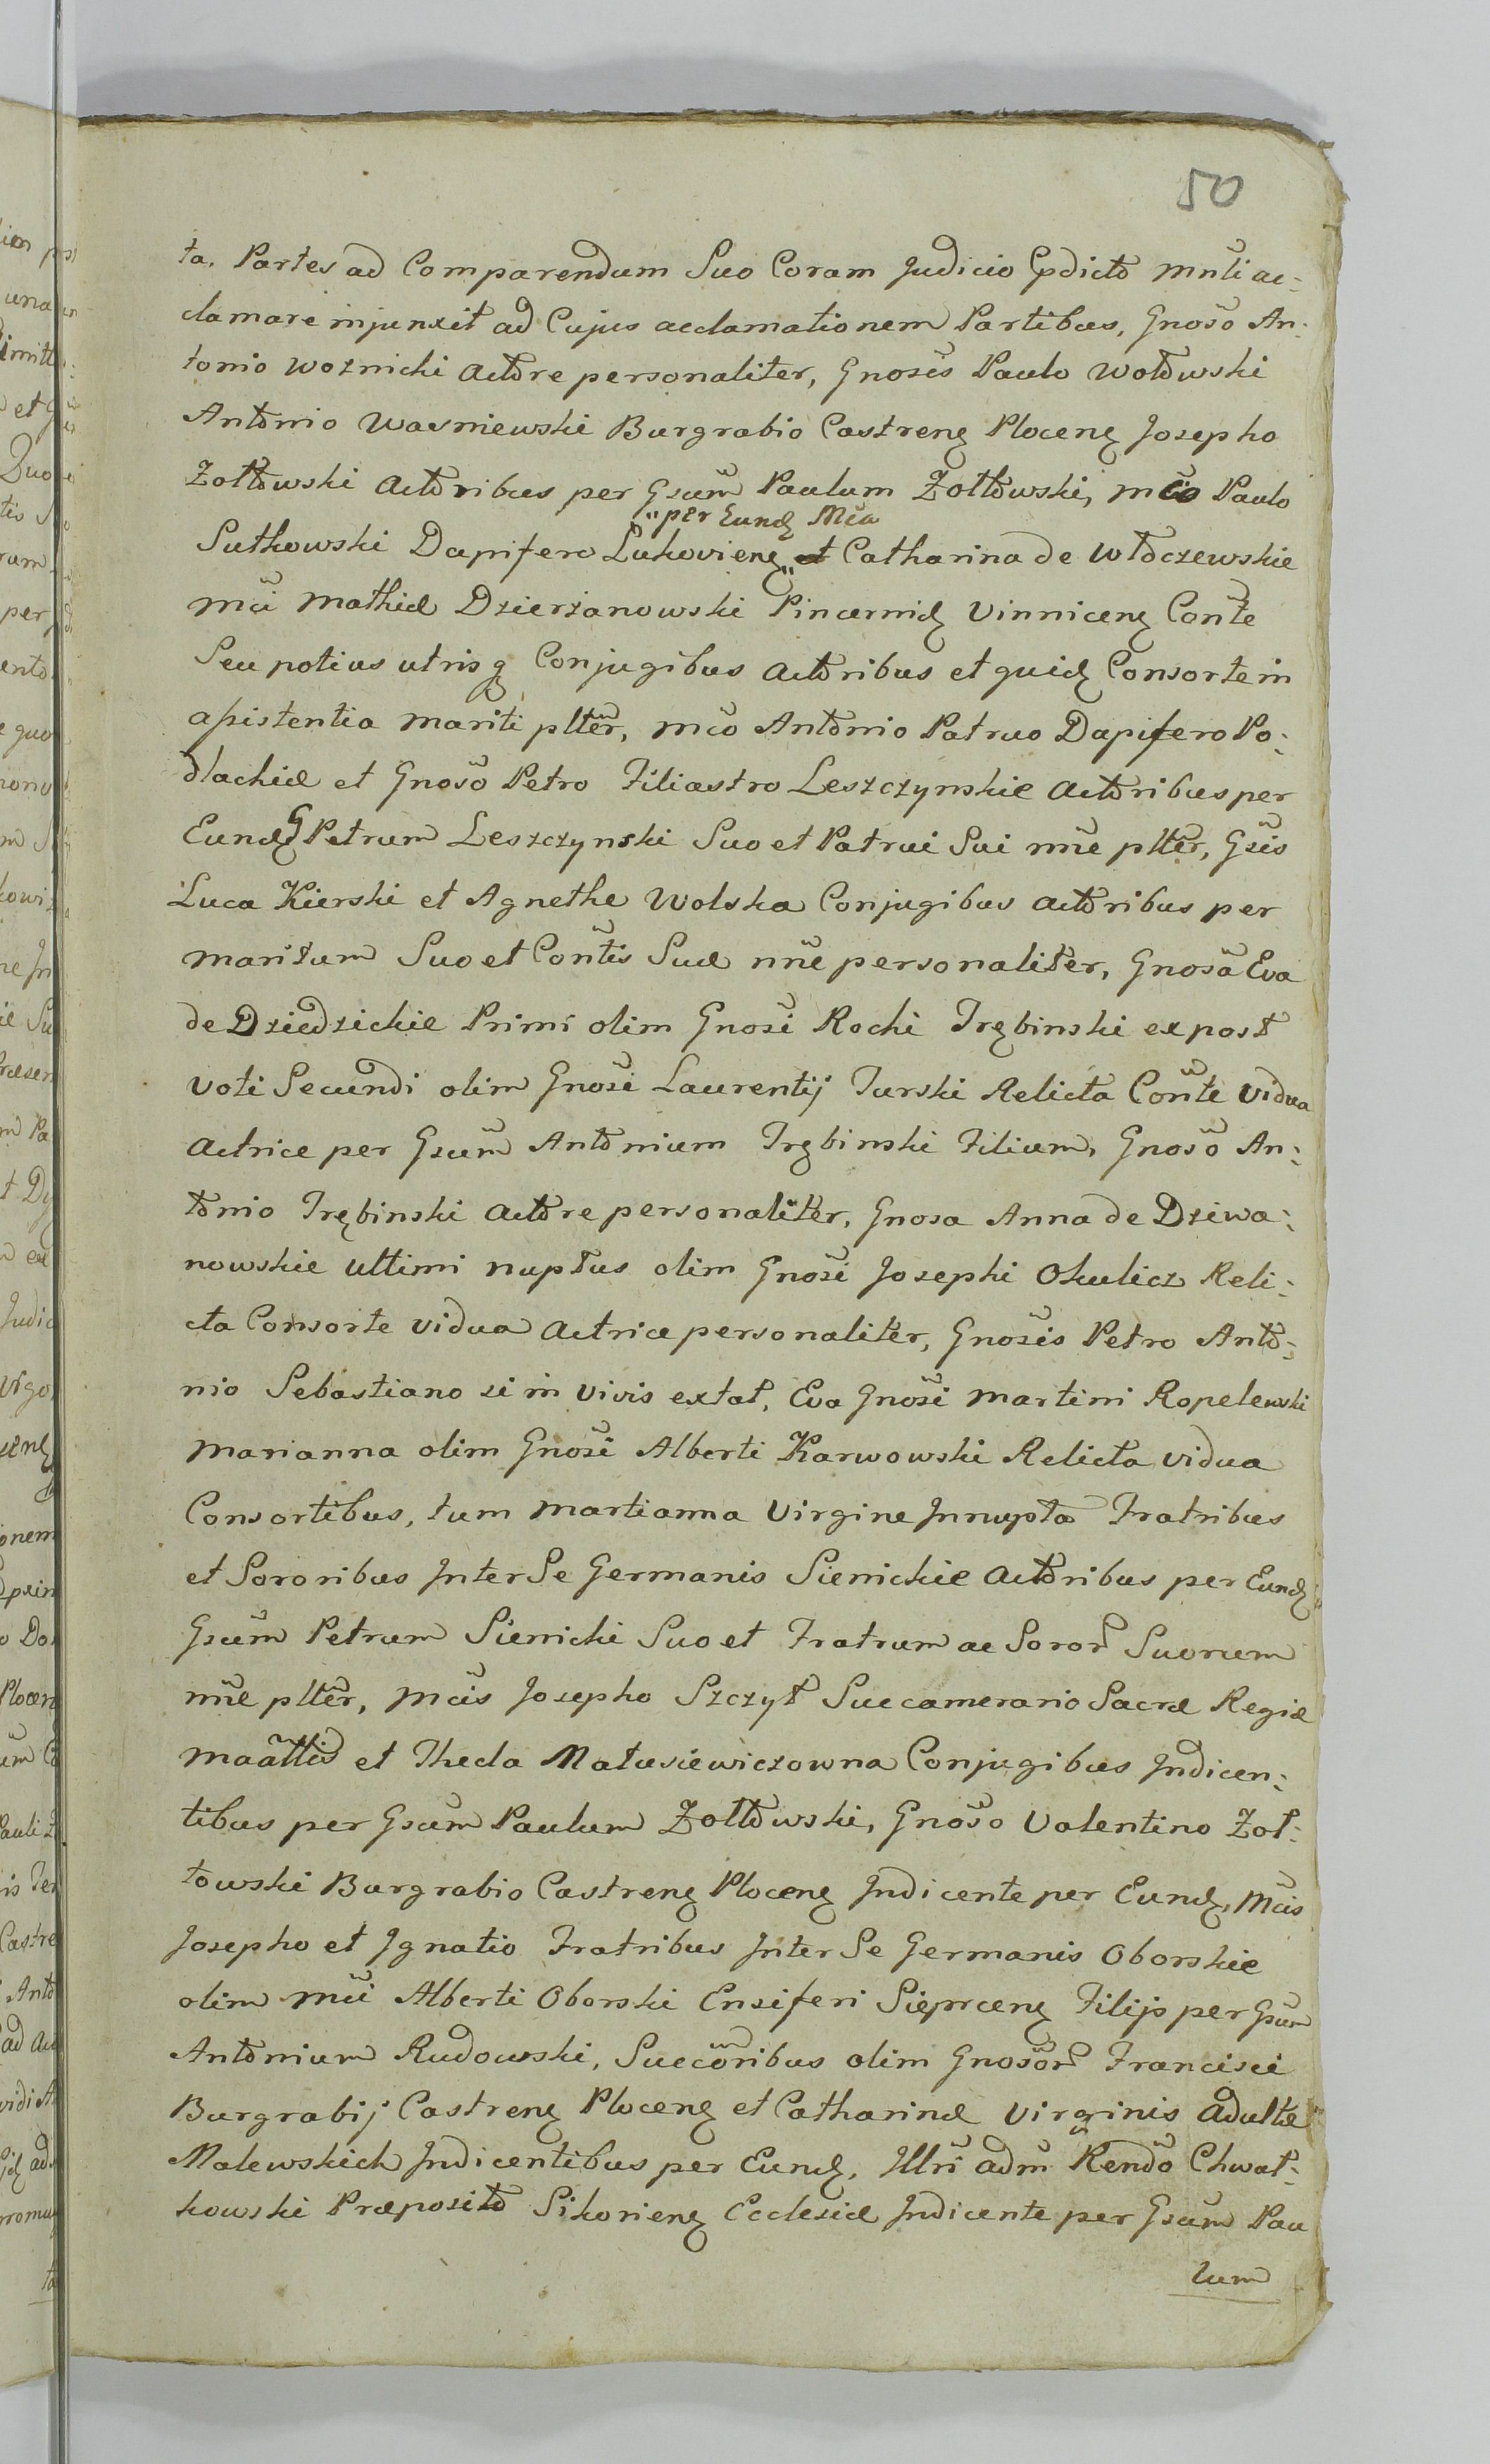 50
ta. Partes ad Comparendum Suo Coram Judicio Epdicto mnli ac:
clamare injunxit ad Cujus acclamationem Partibus, Gnoso An:
tonio Woznicki Actore personaliter, Gnosis Paulo Wołowski
Antonio Wasniewski Burgrabio Castreng Ploceng Josepho
Zołtowski Actoribus per Gsum Paulum Zołtowski, mco Paulo
"per Eund Mca
Sutkowski Dapifero Lukovieng et Catharina de Włoczewskie
mci Mathiæ Dzierzanowski Pincernid Vinniceng Conte
Seu potius utrisq Conjugibus Actoribus et quid Consorte in
assistentia mariti plter, mco Antonio Patruo Dapifero Po:
dlachiæ et Gnoso Petro Filiastro Leszczynskie Actoribus per
Eund G Petrum Leszczynski Suo et Patrui Sui nne plter, Gsis
Luca Kierski et Agnethe Wolska Conjugibus Actoribus per
maritum Suo et Contis Suæ nne personaliter, Gnosa Eva
de Dziedzickie Primi olim Gnosi Rochi Trębinski ex post
voti Secundi olim Gnosi Laurentij Turski Relicta Conte Vidua
Actrice per Gsum Antonium Trębinski Filium, Gnoso An:
tonio Trębinski Actore personaliter, Gnosa Anna de Dziwa:
nowskie ultimi nuptus olim Gnosi Josephi Okulicz Reli:
cta Consorte vidua Actrice personaliter, Gnosis Petro Anto:
nio Sebastiano si in vivis extat, Eva Gnosi Martini Ropelewski
Marianna olim Gnosi Alberti Karwowski Relicta vidua
Consortibus, tum Martianna Virgine Innupta Fratribus
et Sororibus Inter Se Germanis Sienickie Actoribus per Eund
Gsum Petrum Sienicki Suo et Fratrum ac Soror Suorum
nne plter, Mcis Josepho Szczyt Succamerario Sacræ Regiæ
Maattis et Thecla Matusiewiczowna Conjugibus Indicen:
tibus per Gsum Paulum Zołtowski, Gnoso Valentino Zoł:
towski Burgrabio Castreng Ploceng Indicente per Eund, Mcis
Josepho et Ignatio Fratribus Inter Se Germanis Oborskie
olim Mci Alberti Oborski Ensiferi Sieprceng Filijs per Gsum
Antonium Rudowski, Succoribus olim Gnosor Francisci
Burgrabij Castreng Ploceng et Catharinæ Virginis Adultæ
Malewskich Indicentibus per Eund, Illri adm Rendo Chwał:
kowski Præposito Sikorieng Ecclesiæ Indicente per Gsum Pau
lum